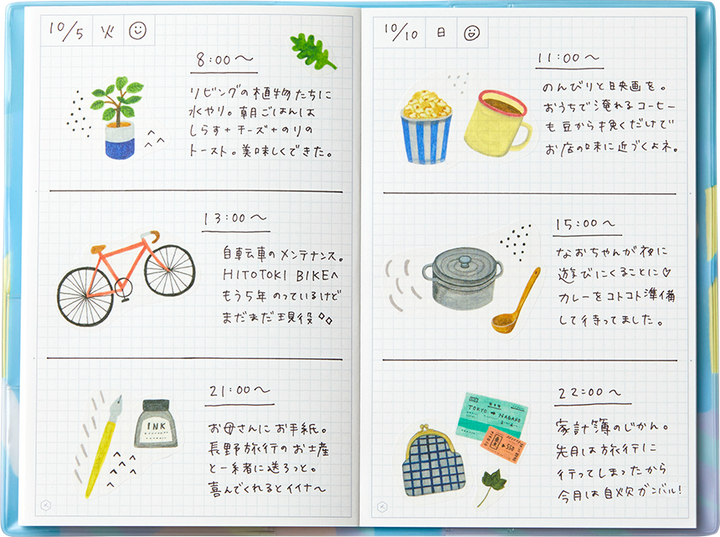 10/5 火
8:00〜
リビングの植物たちに
水やり。朝ごはんは
しらす+チーズ+のりの
トースト。美味しくできた。
13:00〜
自転車のメンテナンス。
HITOTOKI BIKEへ
もう5年のっているけど
まだまだ現役
21:00〜
INK
お母さんにお手紙。
長野旅行のお土産
と一緒に送ろっと。
喜んでくれるとイイナ〜
10/10 日
11:00〜
のんびりと映画を。
おうちで淹れるコーヒー
も豆から挽くだけで
お店の味に近づくよネ。
15:00〜
なおちゃんが夜に
遊びにくることに♡
カレーをコトコト準備
して待ってました。
22:00〜
TOKYO → NAGANO
550
家計簿のじかん。
先月は旅行に
行ってしまったから
今月は自炊ガンバル!